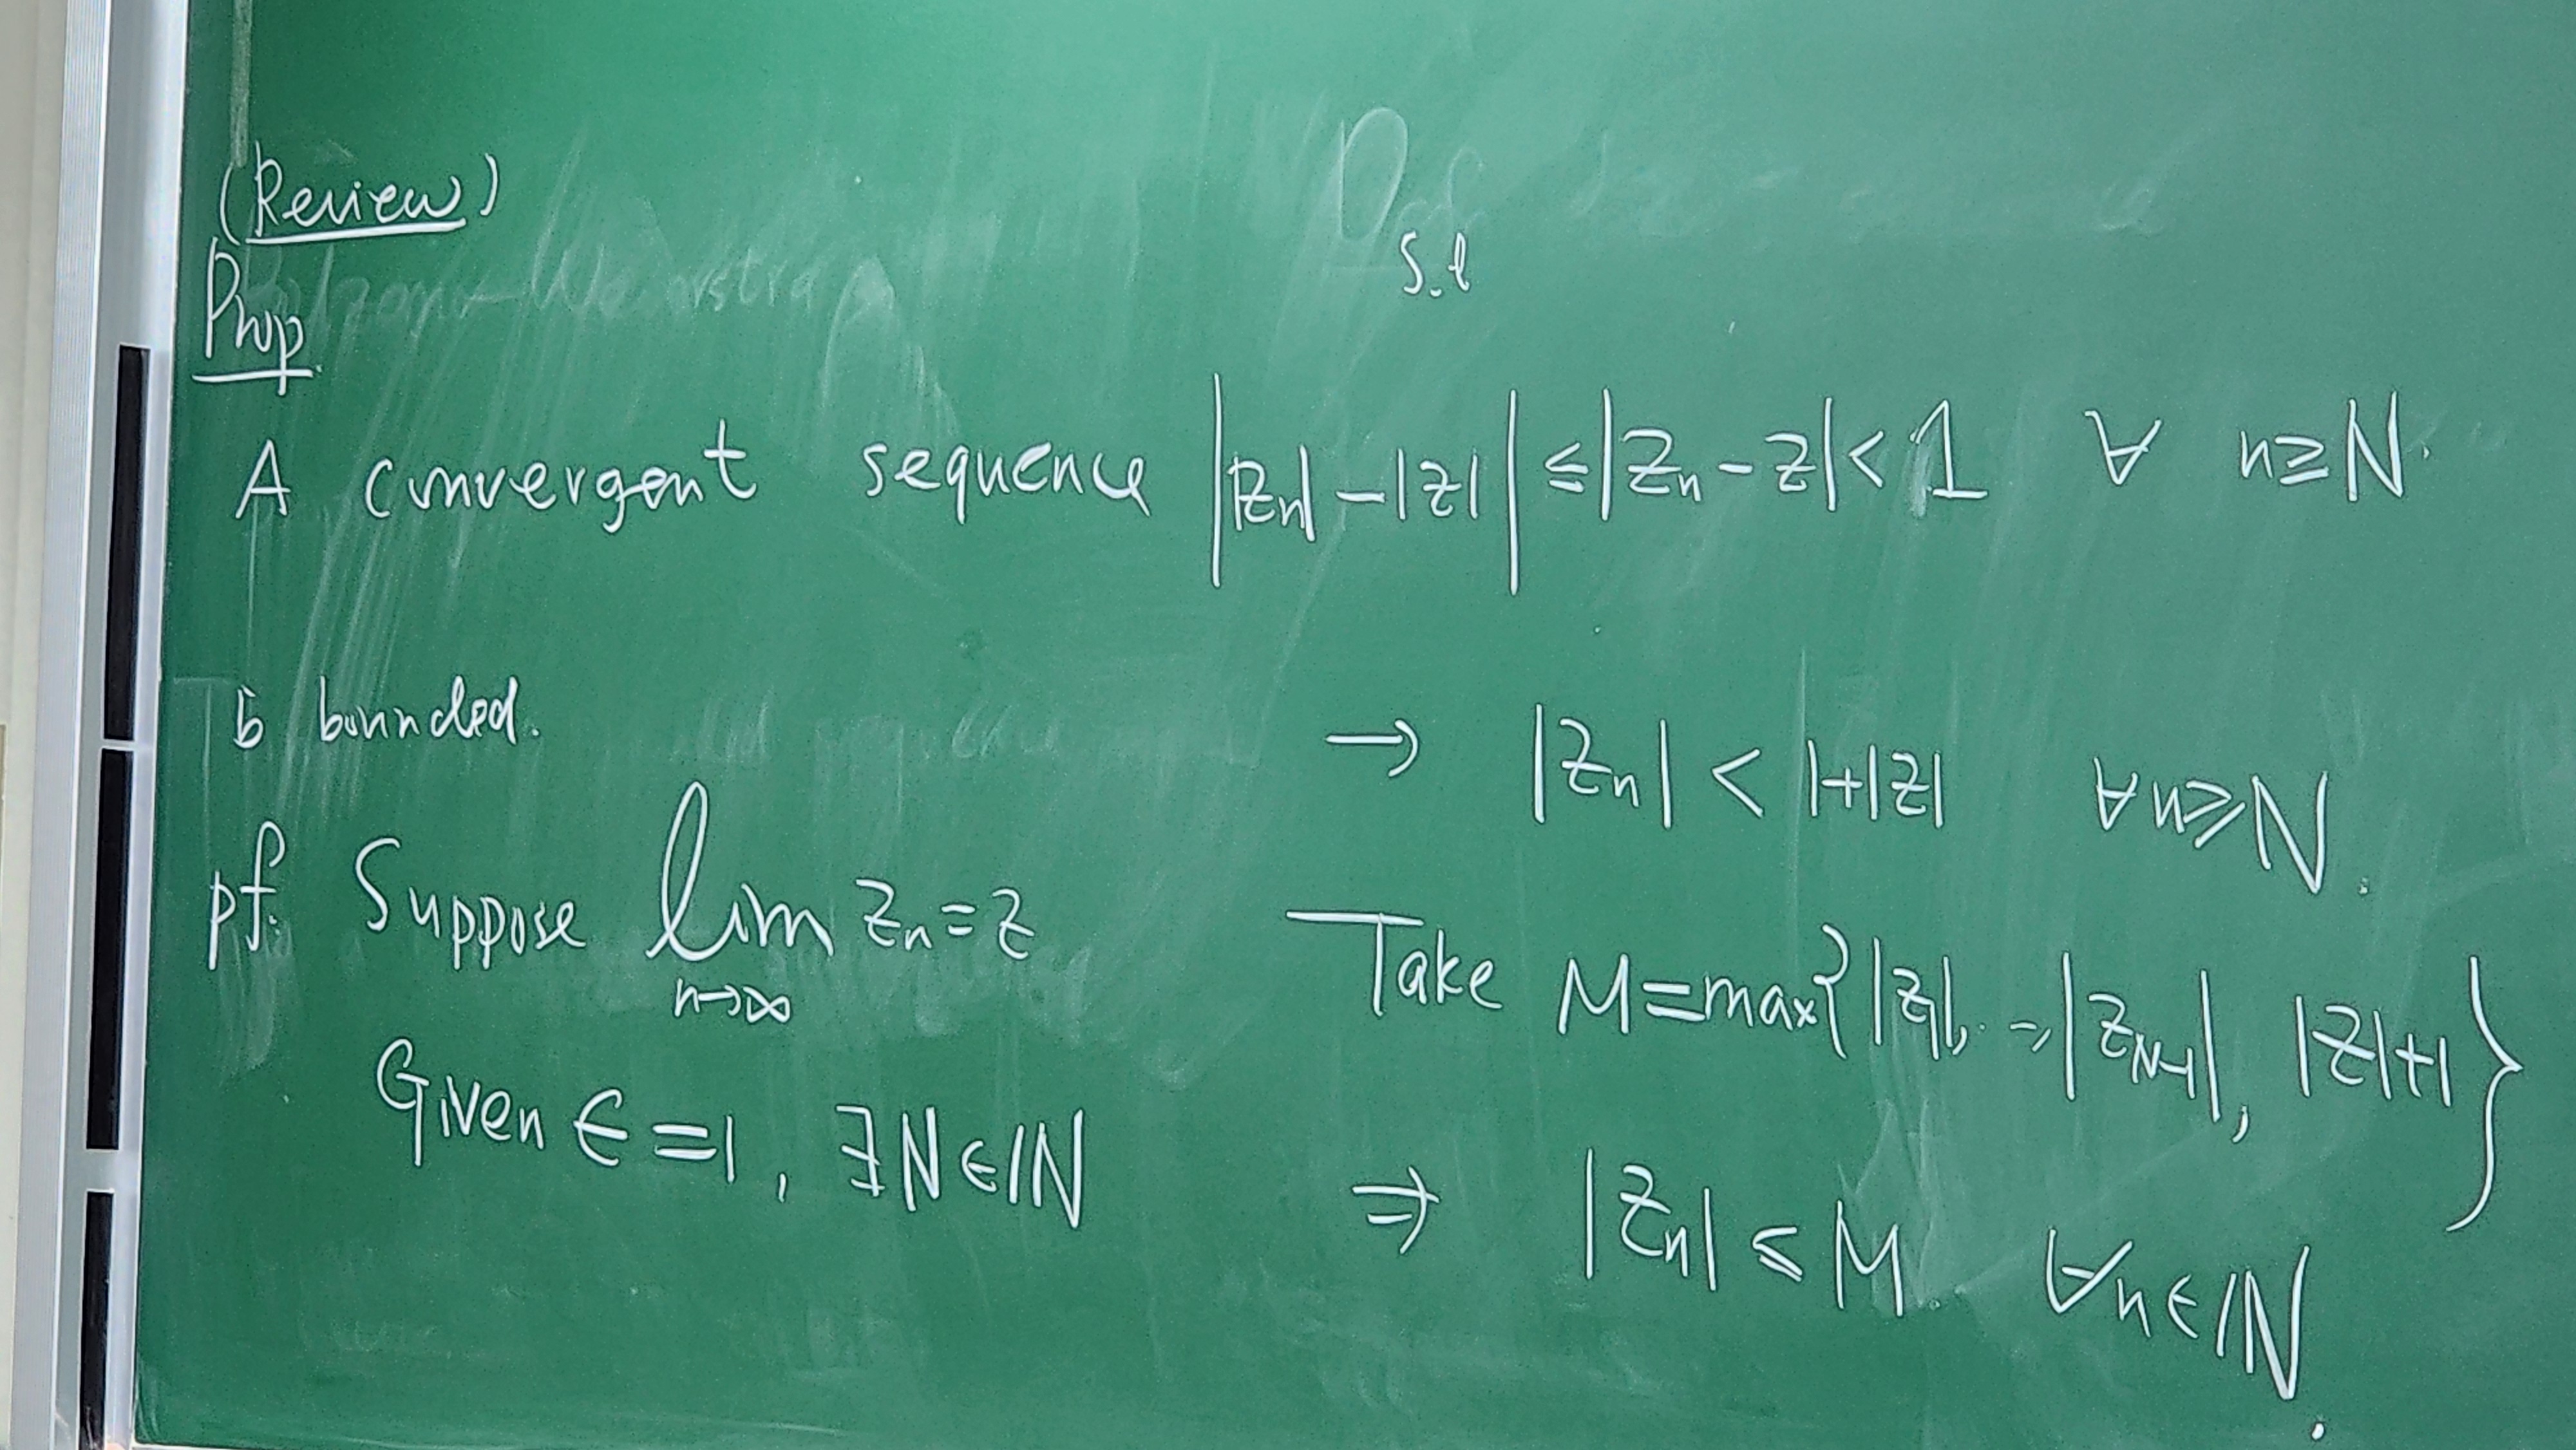 (Review)
Prop.
A convergent sequence
is bounded.
pf. Suppose lim_{n→∞} z_n = z
Given ε = 1, ∃ N ∈ ℕ
s.t
||z_n| - |z|| ≤ |z_n - z| < 1 ∀ n ≥ N.
→ |z_n| < 1 + |z| ∀ n ≥ N.
Take M = max{|z_1|, ..., |z_{N-1}|, |z| + 1}
⇒ |z_n| ≤ M. ∀ n ∈ ℕ.